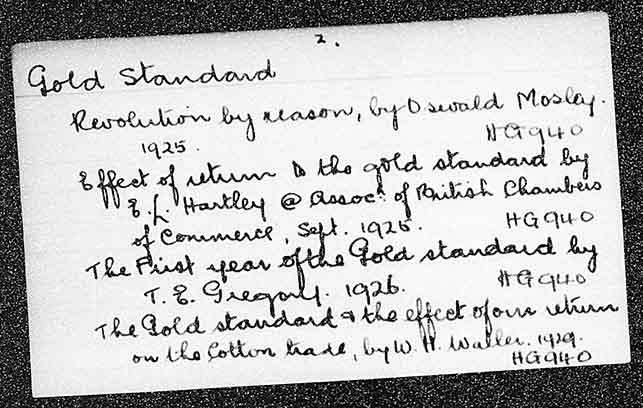 2.
Gold Standard
Revolution by reason, by Oswald Mosley.
1925. HG940
Effect of return to the gold standard by
E.L. Hartley @ Assoc. of British Chambers
of Commerce, Sept. 1925. HG940
The First year of the Gold standard by
T.E. Gregory. 1926. HG940
The Gold standard & the effect of our return
on the Cotton trade, by W. H. Waller. 1929.
HG940